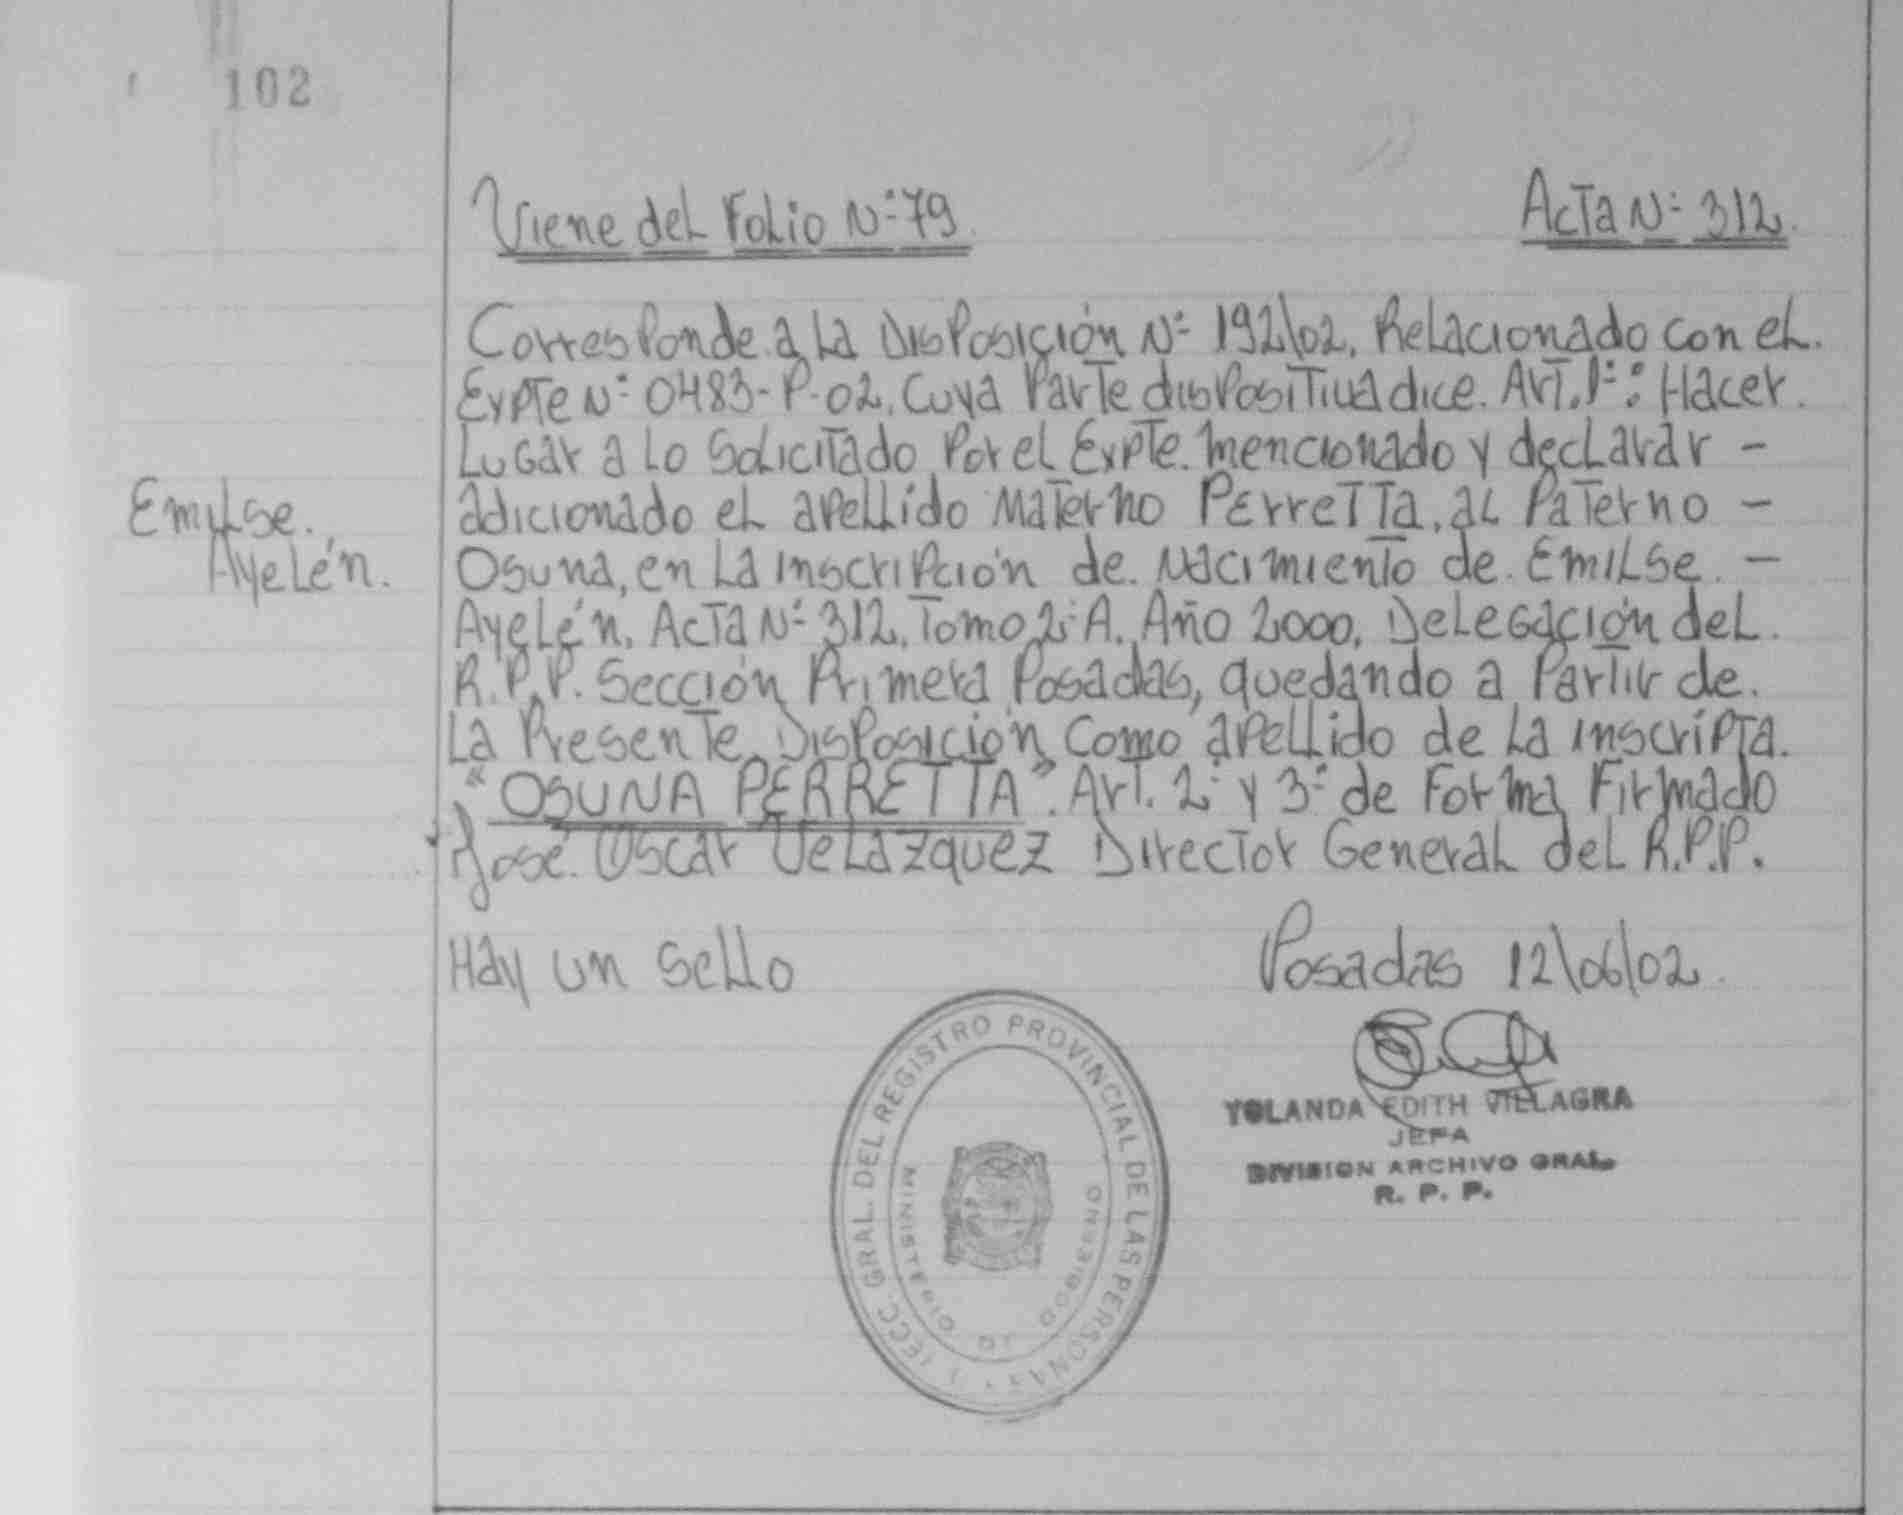 102
Viene del Folio Nº 79. Acta Nº 312.
Corresponde a la Disposición Nº 192/02, Relacionado con el.
Expte Nº 0483-P-02, Cuya Parte dispositiva dice. Art. 1º: Hacer.
Lugar a lo Solicitado Por el Expte. mencionado y declarar -
adicionado el apellido Materno PErreTTa, al Paterno -
Osuna, en La inscripción de. Nacimiento de. Emilse. -
Ayelén, Acta Nº 312, Tomo 2º A. Año 2000, Delegación del.
R.P.P. Sección Primera Posadas, quedando a Partir de.
La Presente Disposición Como apellido de La inscripta.
"OSUNA PERRETTA". Art. 2º y 3º de Forma Firmado
José. Oscar Velazquez Director General del R.P.P.
Emilse.
Ayelén.
Hay un Sello
Posadas 12/06/02.
YOLANDA EDITH VILLAGRA
JEFA
DIVISION ARCHIVO GRAL.
R. P. P.
GRAL. DEL REGISTRO PROVINCIAL DE LAS PERSONAS
MINISTERIO DE GOBIERNO